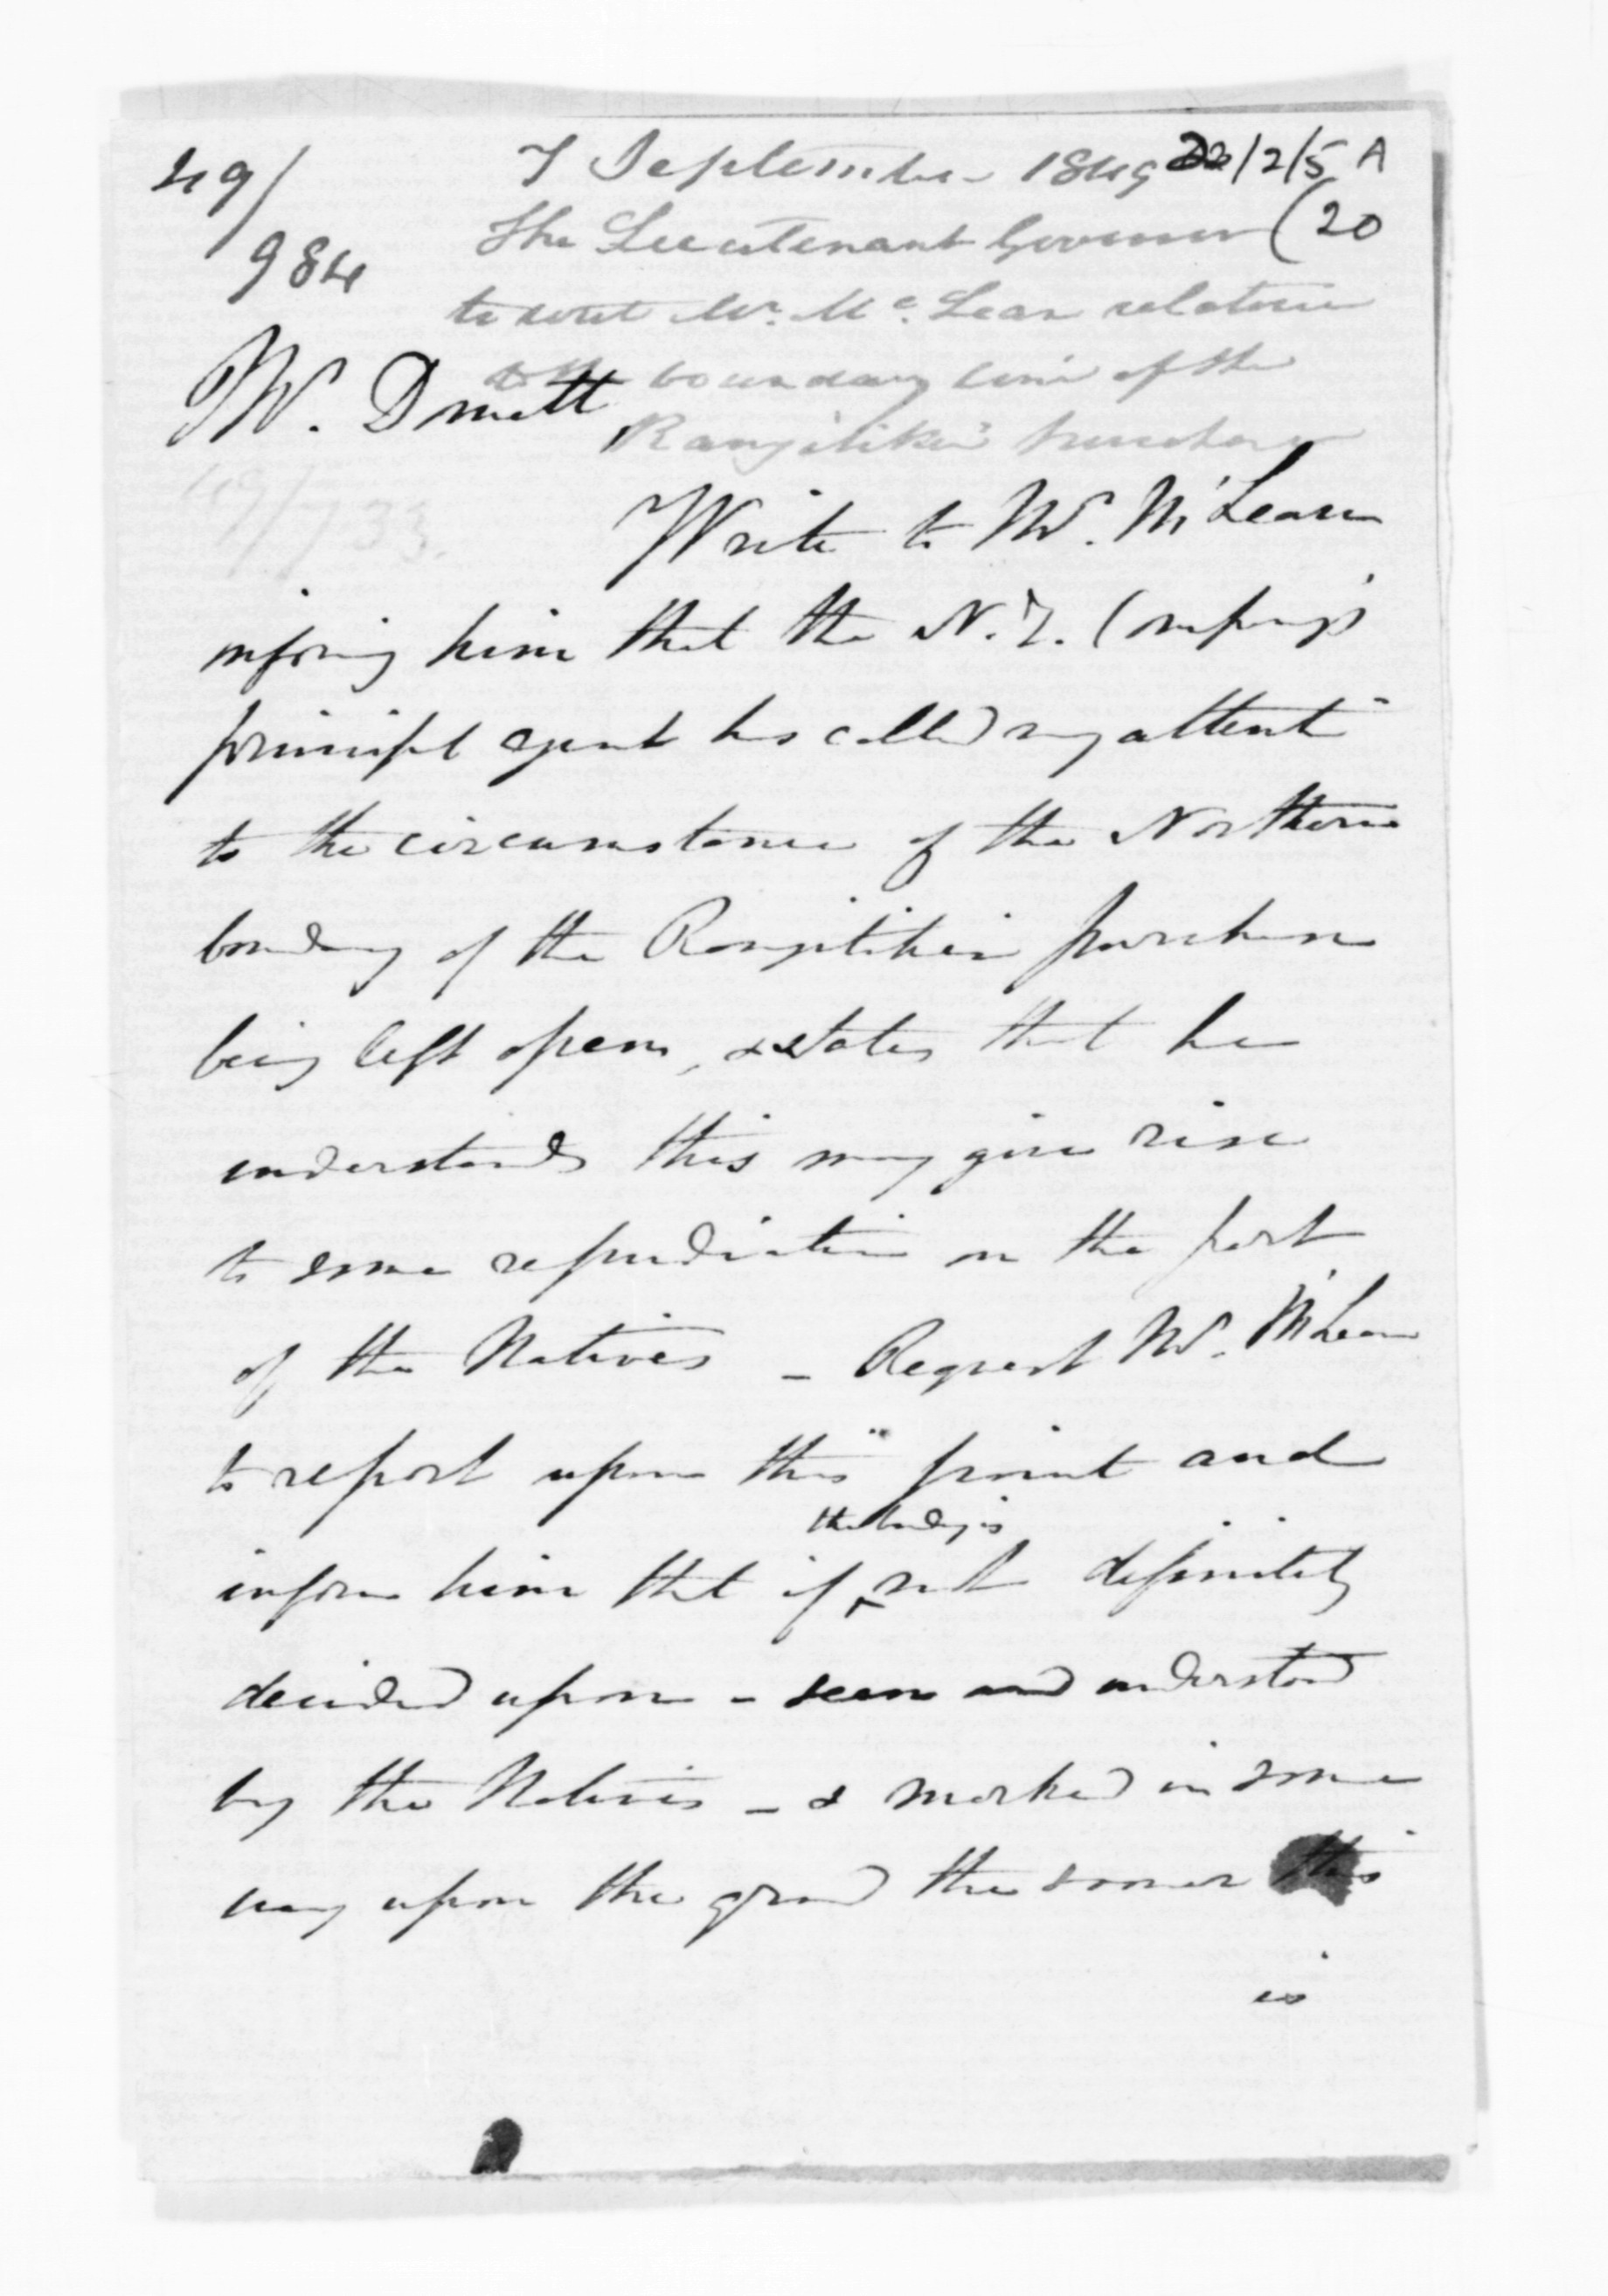 49/
984
7 September 1849 22/2/5 A
(20
The Lieutenant Governor
to Mr. McLean relative
to the boundary line of the
Rangitikei purchase
Mr. Domett
49/733.
Write to Mr. McLean
informg him that the N.Z. Company's
principl agent has called my attentn
to the circumstance of the Northern
boundary of the Rangitikei purchase
being left open, & states that he
understands this may give rise
to some repudiation on the part
of the Natives – Request Mr. McLean
to report upon this point and
the bndry is
inform him that if not definitely
decided upon – seen and understood
by the Natives – & marked in some
way upon the ground the sooner this
is